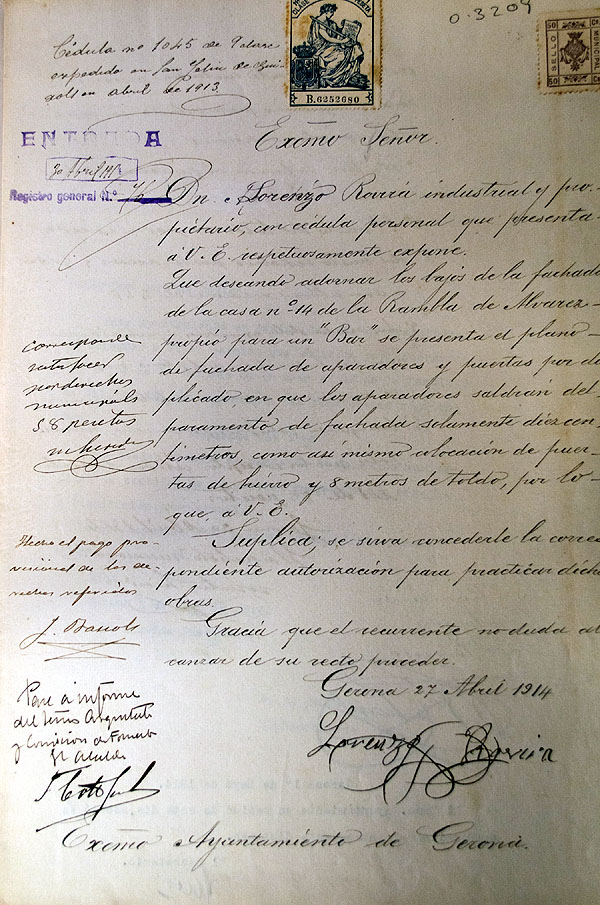 0.3209
B.6252680
50 50
SELLO MUNICIPAL
Cédula nº 1045 de 9ª clase
expedida en San Feliu de Gui-
xols en abril de 1913.
ENTRADA
30 Abril 191
Registro general N.º
Excmo Señor.
Dn. Lorenzo Rovira industrial y pro-
pietario, con cédula personal que presenta
á V. E. respetuosamente expone.
Que deseando adornar los bajos de la fachada
de la casa nº 14 de la Rambla de Alvarez
propio para un "Bar" se presenta el plano
de fachada de aparadores y puertas por du-
plicado, en que los aparadores saldrán del
paramento de fachada solamente diez cen-
tímetros, como así mismo colocación de puer-
tas de hierro y 8 metros de toldo, por lo
que, á V. E.
Suplica; se sirva concederle la corres
pondiente autorización para practicar dichas
obras.
Gracia que el recurrente no duda al
canzar de su recto proceder.
Gerona 27 Abril 1914
Lorenzo Rovira
Excmo Ayuntamiento de Gerona.
corresponde
satisfacer
por derechos
municipals
58 pesetas
Hecho el pago pro-
visional de los de-
rechos referidos
J. Bassols
Pase á informe
del Señor Arquitecto
y Comisión de Fomento
El Alcalde